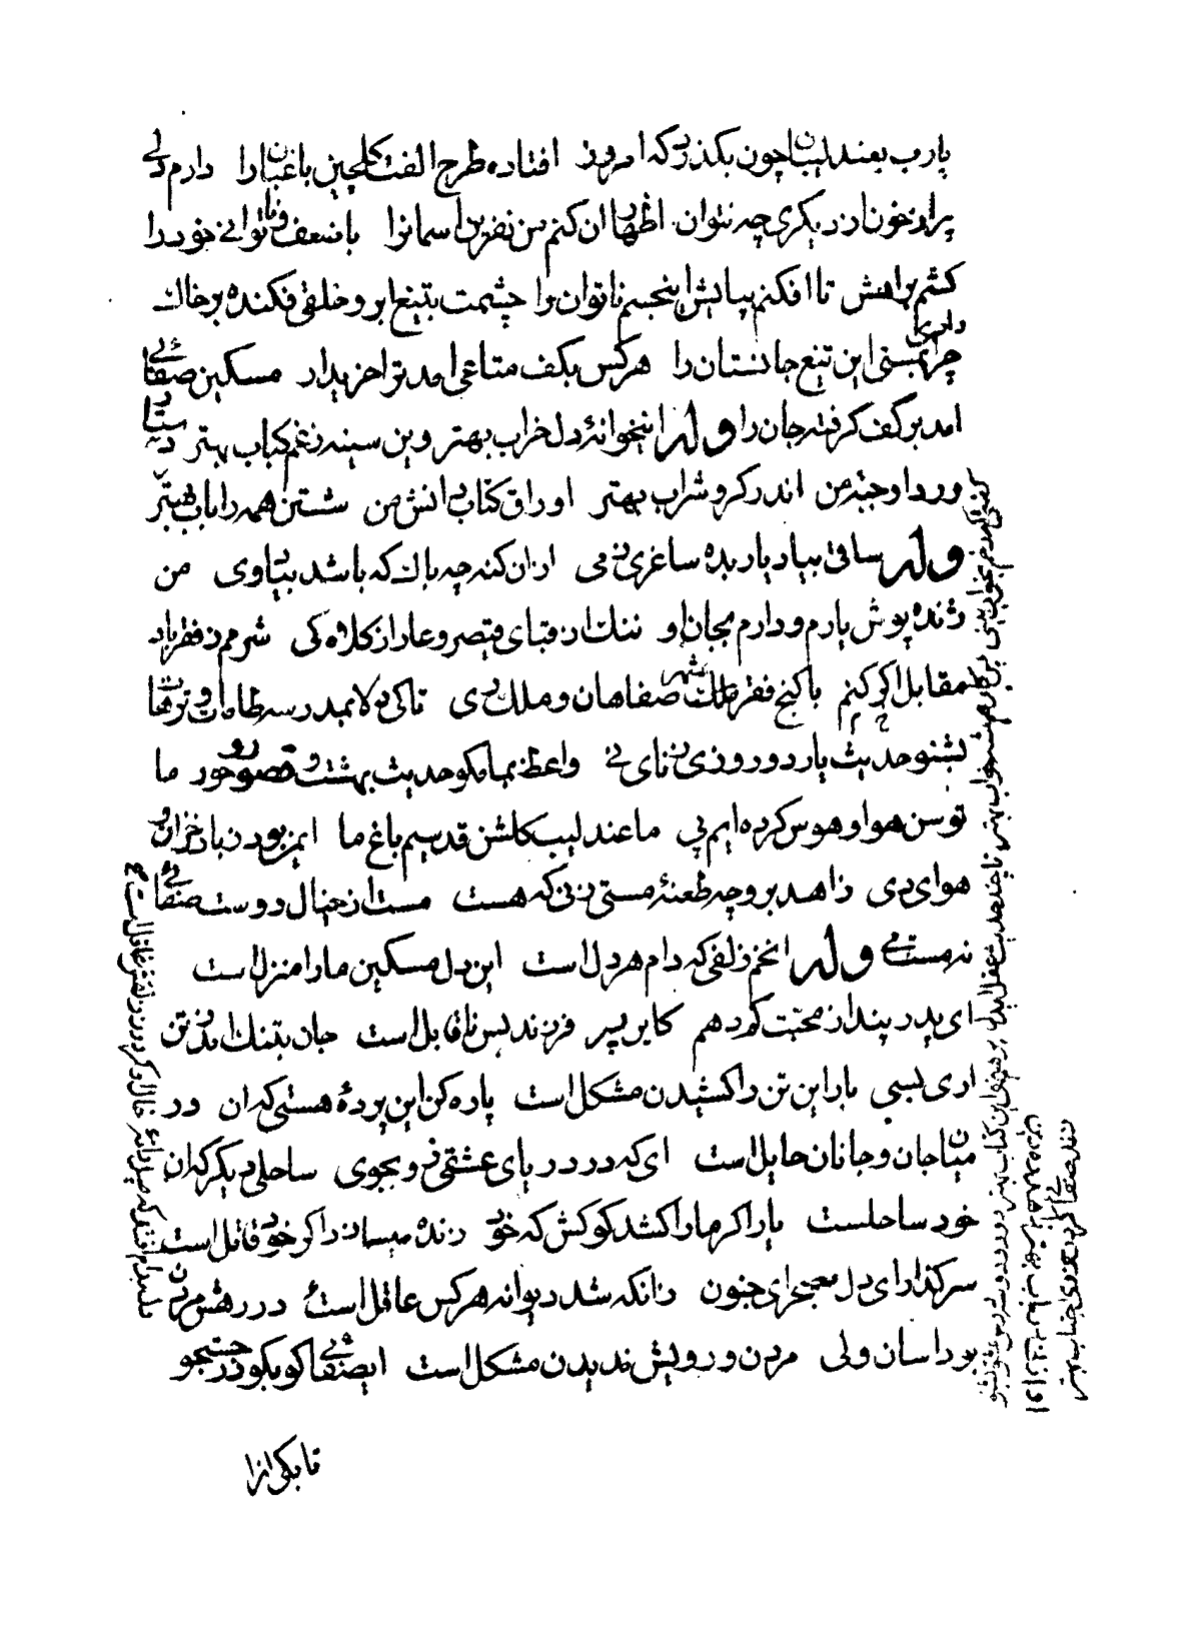 یارب بعندلیبان چون بکذرد که امروز افتاده طرح الفت کلچین باغبانرا دارم دلی
پراز خون از دیکری چه نتوان اظهار ان کنم من نفرین اسمانرا با ضعف و ناتوانی خود را
کشم براهش تا افکنم بپایش اینجسم ناتوان را چشمت بتیغ ابرو خلقی فکنده بر خاک
داری چرا بمستی این تیغ جانستان را هرکس بکف متاعی امد ترا خریدار مسکین صفائی
امد بر کف کرفته جان را وله اینخوانهٔ دل خراب بهتر وین سینه زغم کباب بهتر دستار
وردا وجبهٔ من اندر کرو شراب بهتر اوراق کتاب دانش من شستن همه را باب بهتر
وله ساقی بیاد یار بده ساغری زمی از ان کنه چه باک که باشد بیاد وی من
ژنده پوش یارم و دارم بجان او ننک از قبای قیصر و عار از کلاه کی شرمم ز فقر باد
مقابل اکر کنم با کنج فقر ملک شهر صفاهان و ملک ری تاکی دلا بمدرسه طامات و ترهات
بشنو حدیث یار دو روزی ز نای نی واعظ بما مکو حدیث بهشت و قصور و حور ما
توسن هوا و هوس کرده ایم پی ما عندلیب کلشن قدسیم باغ ما ایمن بود ز باد خزان و
هوای دی زاهد برو چه طعنهٔ مستی زنی که هست مست از خیال دوست صفائی
نه مست می وله انخم زلفی که دام هر دل است این دل مسکین ما را منزل است
ای پدر پند از محبت کو دهم کاین پسر فرزند بس ناقابل است جان بتنک امد ز تن
اری بسی بار این تن را کشیدن مشکل است پاره کن این پردهٔ هستی که ان در
میان جان و جانان حایل است ای که در دریای عشقی رو بجوی ساحلی دیکر که ان
خود ساحلست یار اکر ما را کشد کو کش که خود زنده میسازد اکر خود قاتل است
سر کذار ای دل بصحرای جنون زانکه شد دیوانه هرکس عاقل است در رهش مردن
بود اسان ولی مردن و رویش ندیدن مشکل است ایصفائی کو بکو در جستجو
تا بکی از ا